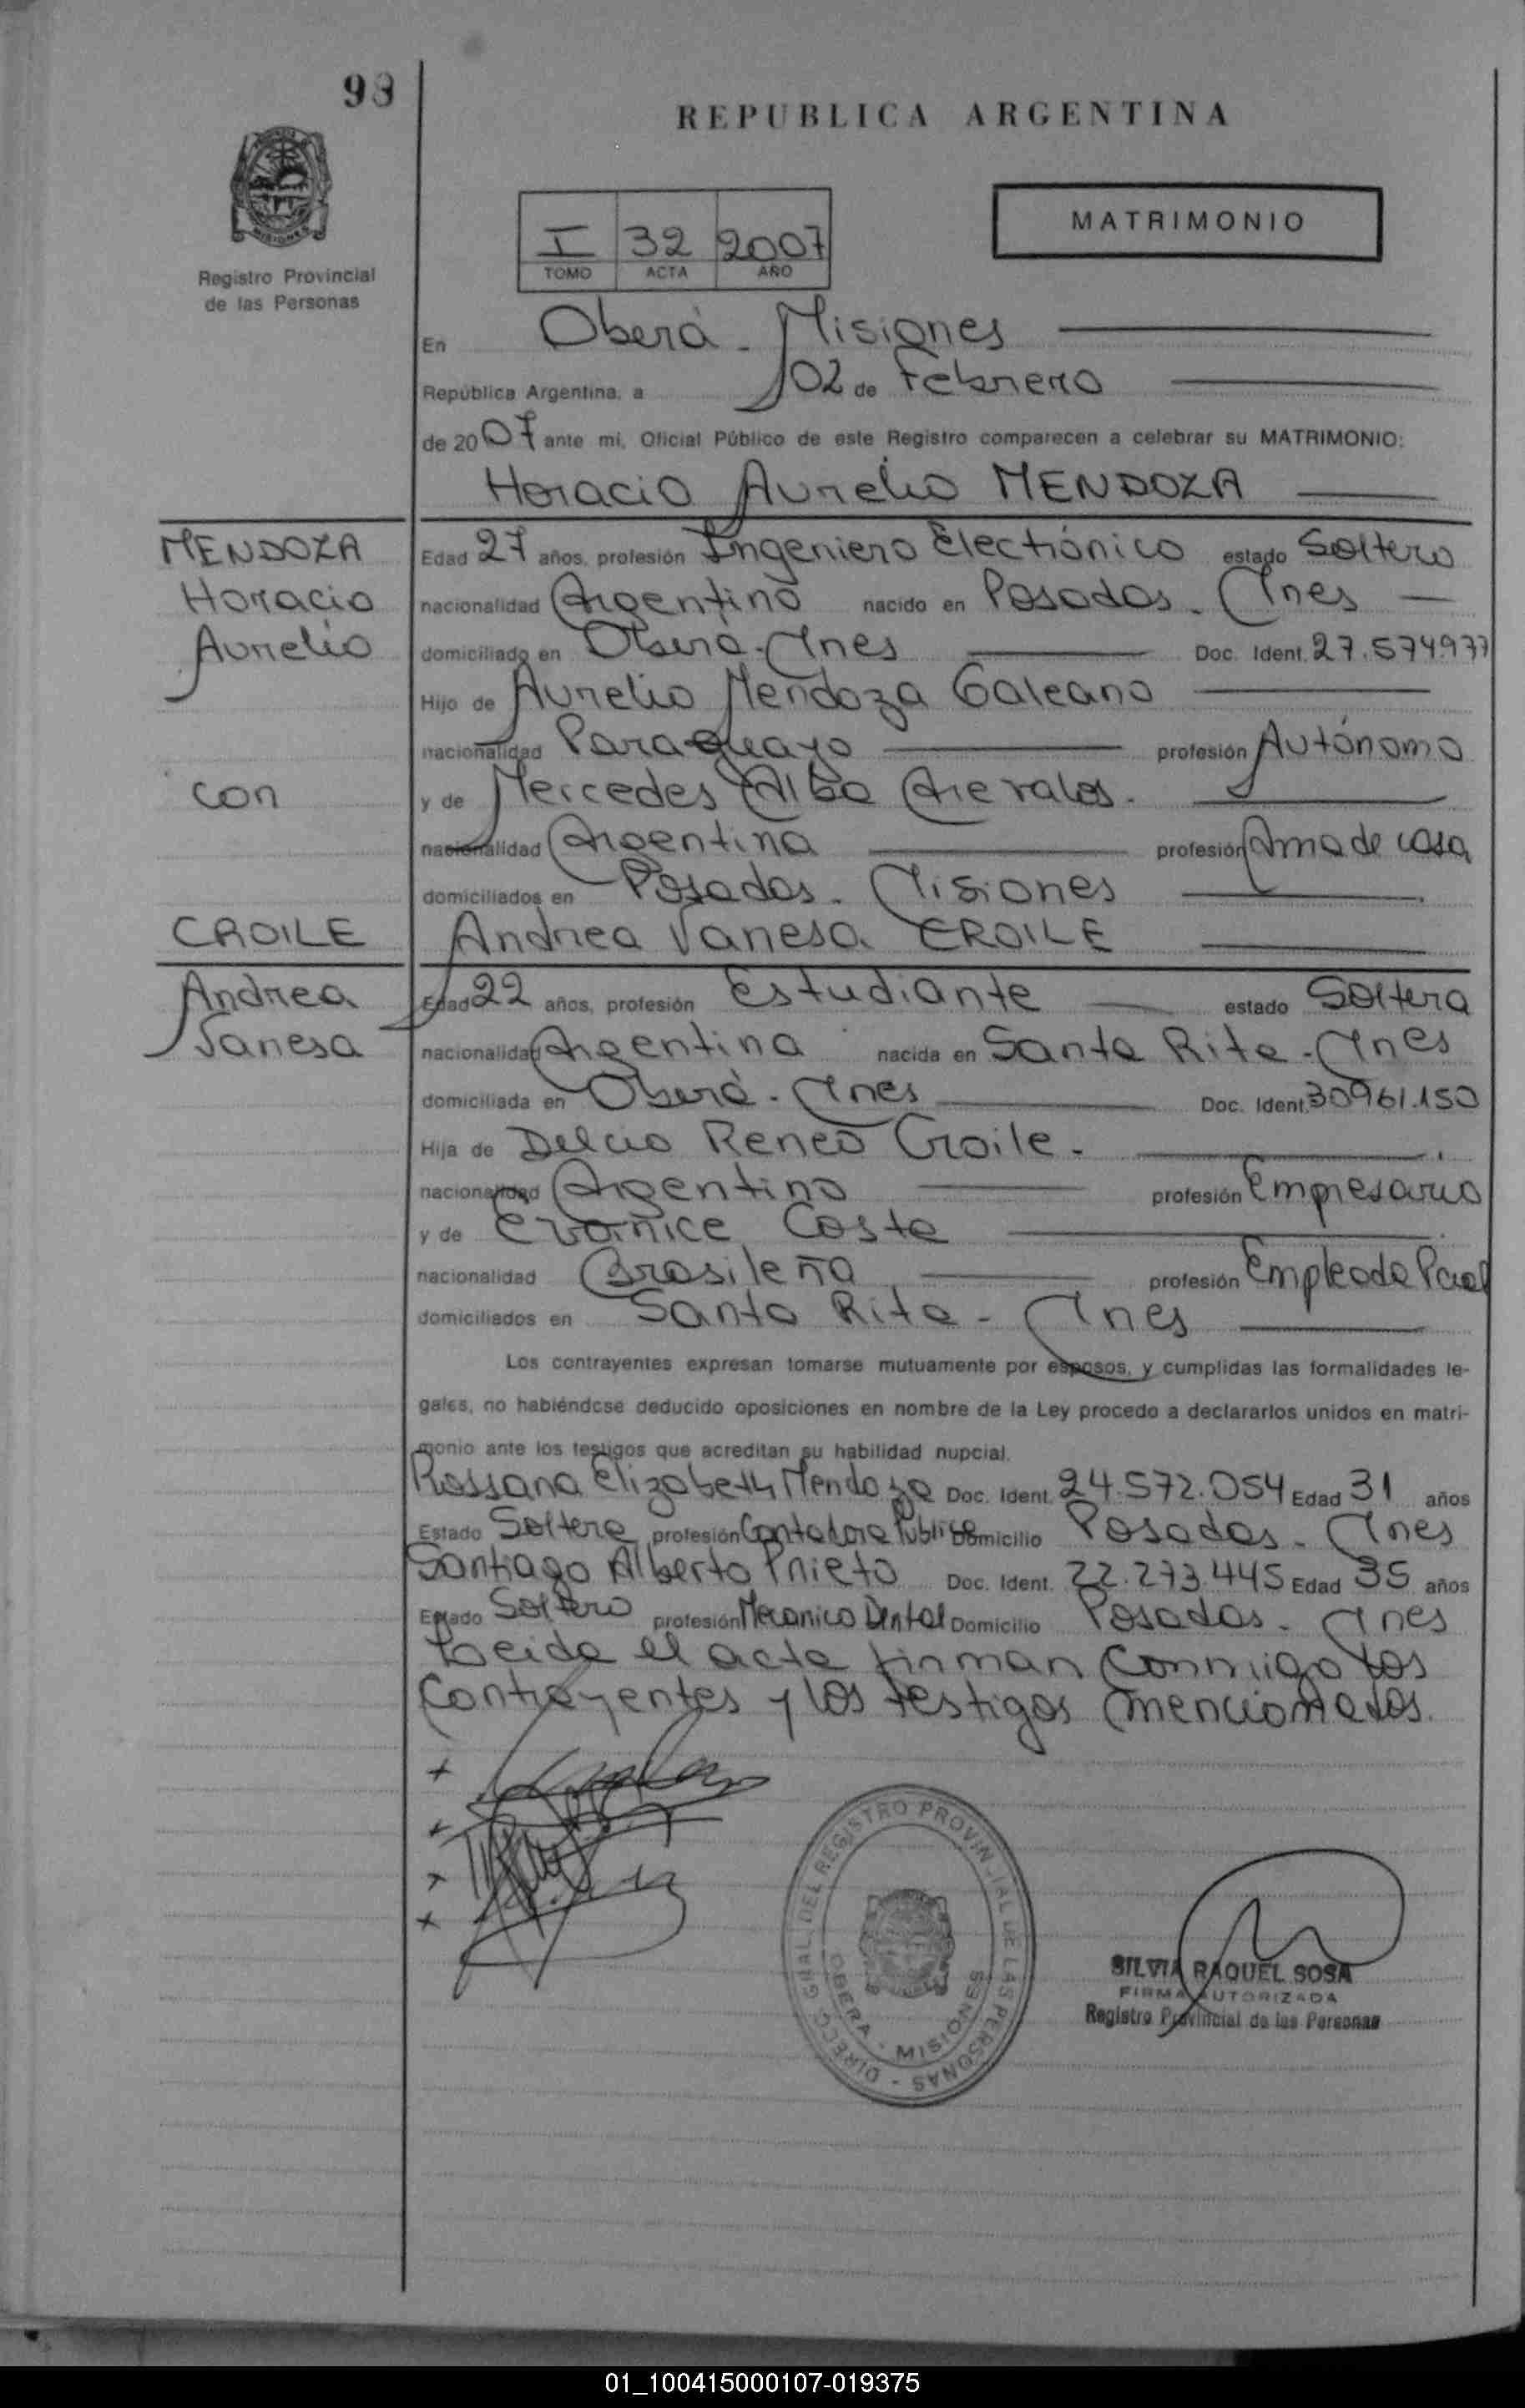 98
REPUBLICA ARGENTINA
MISIONES
Registro Provincial
de las Personas
I 32 2007
TOMO ACTA AÑO
MATRIMONIO
En Oberá - Misiones
República Argentina, a 02 de Febrero
de 2007 ante mi, Oficial Público de este Registro comparecen a celebrar su MATRIMONIO:
Horacio Aurelio MENDOZA
MENDOZA
Horacio
Aurelio
con
CROILE
Andrea
Vanesa
Edad 27 años, profesión Ingeniero Electrónico estado Soltero
nacionalidad Argentino nacido en Posadas - Mnes
domiciliado en Oberá - Mnes Doc. Ident. 27.574.977
Hijo de Aurelio Mendoza Galeano
nacionalidad Paraguayo profesión Autónomo
y de Mercedes Alba Arevalos.
nacionalidad Argentina profesión Ama de casa
domiciliados en Posadas - Misiones
Andrea Vanesa CROILE
Edad 22 años, profesión Estudiante estado Soltera
nacionalidad Argentina nacida en Santa Rita - Mnes
domiciliada en Oberá - Mnes Doc. Ident. 30961.150
Hija de Delcio Reneo Croile.
nacionalidad Argentino profesión Empresario
y de Costa
nacionalidad Brasileña profesión Empleada
domiciliados en Santa Rita - Mnes
Los contrayentes expresan tomarse mutuamente por esposos, y cumplidas las formalidades le-
gales, no habiéndose deducido oposiciones en nombre de la Ley procedo a declararlos unidos en matri-
monio ante los testigos que acreditan su habilidad nupcial.
Rossana Elizabeth Mendoza Doc. Ident. 24.572.054 Edad 31 años
Estado Soltera profesión Contadora Publica Domicilio Posadas - Mnes
Santiago Alberto Prieto Doc. Ident. 22.273.445 Edad 35 años
Estado Soltero profesión Mecanico Dental Domicilio Posadas - Mnes
Leida el acta firman conmigo los
contrayentes y los testigos mencionados.
DIRECC. GRAL. DEL REGISTRO PROVINCIAL DE LAS PERSONAS -
OBERA - MISIONES
SILVIA RAQUEL SOSA
FIRMA AUTORIZADA
Registro Provincial de las Personas
01_100415000107-019375